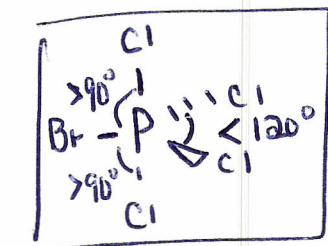 Cl
>90°
Br - P Cl <120°
Cl
>90°
Cl